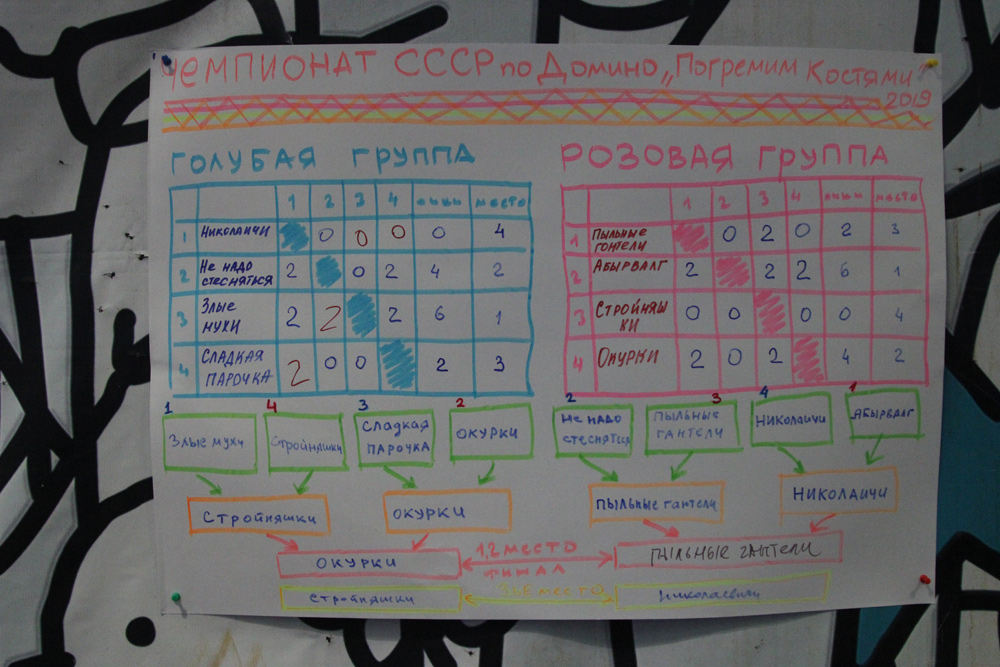 ЧЕМПИОНАТ СССР по Домино „Погремим Костями"
2019
ГОЛУБАЯ ГРУППА
1 2 3 4 очки место
1 Николаичи 0 0 0 0 4
2 Не надо стесняться 2 0 2 4 2
3 Злые мухи 2 2 2 6 1
4 Сладкая парочка 2 0 0 2 3
РОЗОВАЯ ГРУППА
1 2 3 4 очки место
1 Пыльные гантели 0 2 0 2 3
2 Абырвалг 2 2 2 6 1
3 Стройняш ки 0 0 0 0 4
4 Окурки 2 0 2 4 2
1 4 3 2 2 3 4 1
Злые мухи
Стройняшки
Сладкая
парочка
Окурки
Не надо
стеснятся
Пыльные
гантели
Николаичи
Абырвалг
Стройняшки
Окурки
Пыльные гантели
Николаичи
Окурки
1,2 место
финал
Пыльные гантели
Стройняшки
3,4 место
Николаевичи